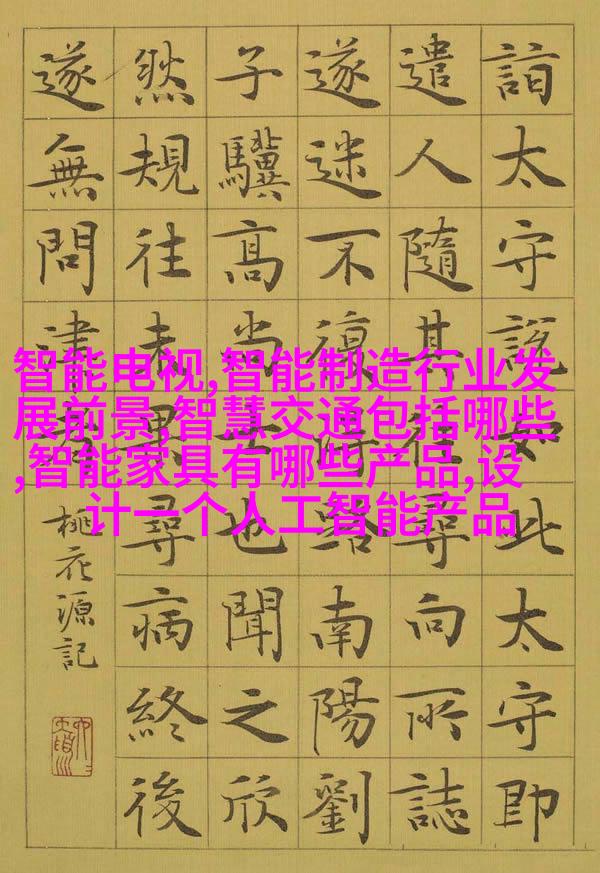 詣太守說如此太守即
遣人隨其往尋向所誌
遂迷不復得路南陽劉
子驥高尚士也聞之欣
然規往未果尋病終後
遂無問津者
桃花源記
智能电视,智能制造行业发
展前景,智慧交通包括哪些
,智能家具有哪些产品,设
计一个人工智能产品